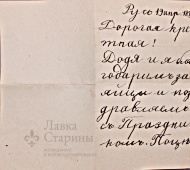 Дорогая кре
тная!
Додя и я бла
годаримъ за
яйцы и по
дравляемъ
съ Праздни
комъ. Поцѣ
Лавка
Старины